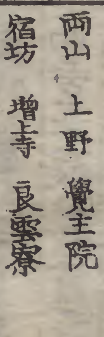 両山 上野 覺主院
宿坊 增上寺 良雲寮